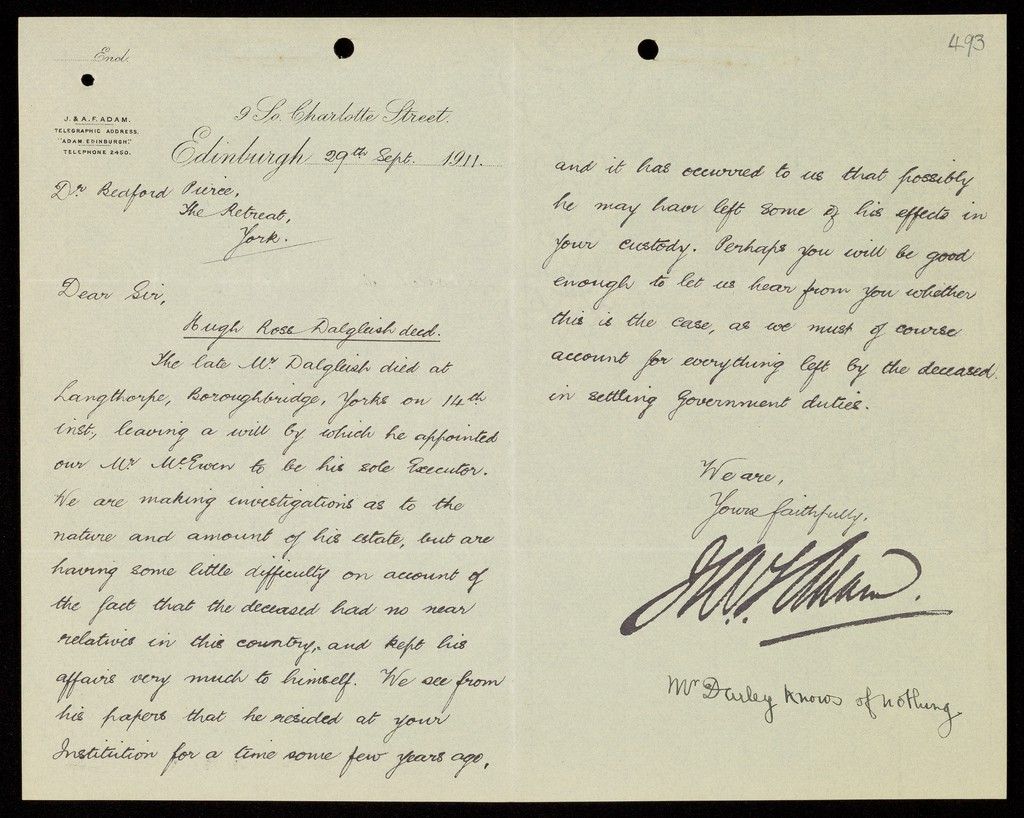 Encl.
J. & A. F. ADAM.
TELEGRAPHIC ADDRESS.
"ADAM. EDINBURGH."
TELEPHONE 2450.
9 So. Charlotte Street.
Edinburgh 29th Sept. 1911.
Dr Bedford Pierce,
The Retreat,
York.
Dear Sir,
Hugh Ross Dalgleish decd.
The late Mr. Dalgleish died at
Langthorpe, Boroughbridge, Yorks on 14th
inst., leaving a will by which he appointed
our Mr McEwen to be his sole Executor.
We are making investigations as to the
nature and amount of his estate, but are
having some little difficulty on account of
the fact that the deceased had no near
relatives in this country, and kept his
affairs very much to himself. We see from
his papers that he resided at your
Institution for a time some few years ago,
493
and it has occurred to us that possibly
he may have left some of his effects in
your custody. Perhaps you will be good
enough to let us hear from you whether
this is the case, as we must of course
account for everything left by the deceased
in settling Government duties.
We are,
Yours faithfully,
J & A. F. Adam.
Mr Darley knows of nothing.